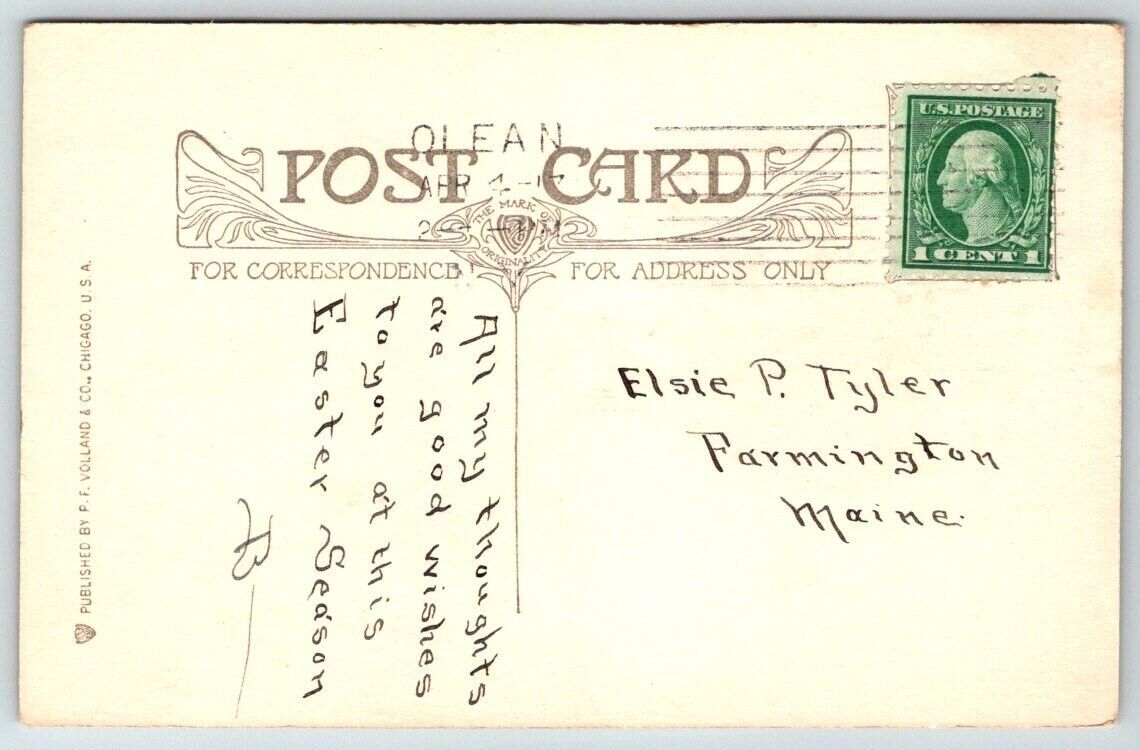 OLEAN
APR 4-17
POST CARD
THE MARK OF
ORIGINALITY
FOR CORRESPONDENCE
FOR ADDRESS ONLY
U.S. POSTAGE
1 CENT 1
All my thoughts
are good wishes
to you at this
Easter Season
Elsie P. Tyler
Farmington
Maine.
PUBLISHED BY P. F. VOLLAND & CO., CHICAGO, U.S.A.